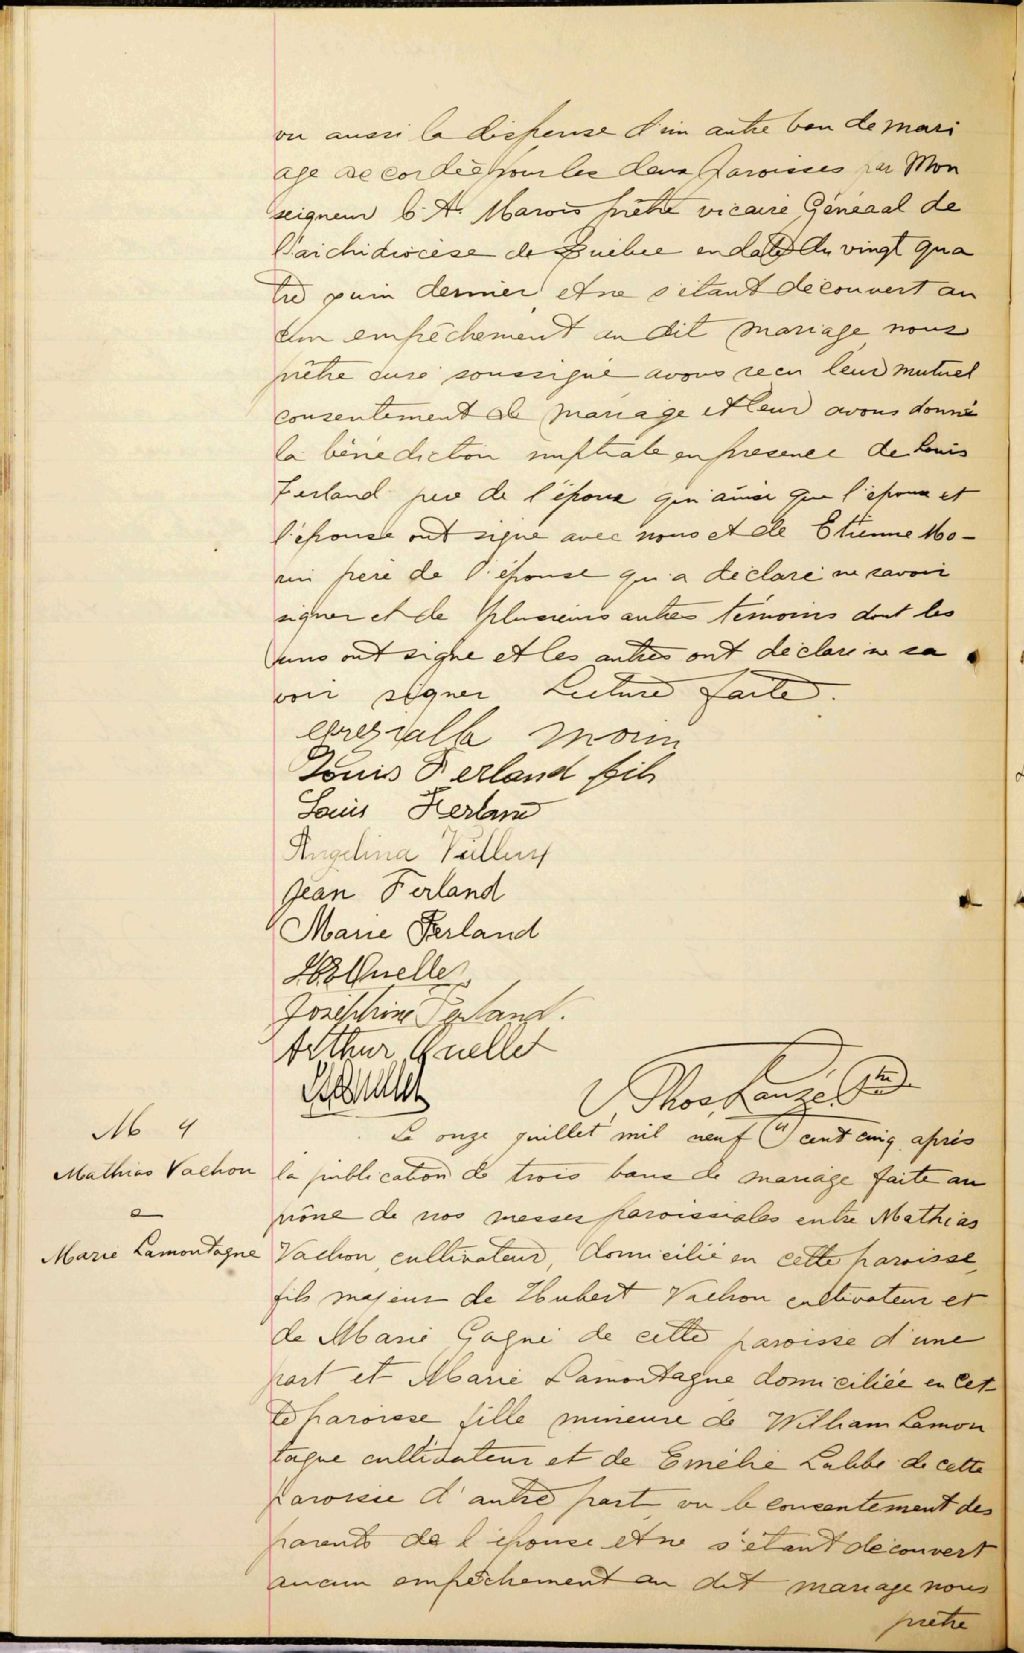 vu aussi la dispense d'un autre ban de mari
age accordée pour les deux paroisses par Mon
seigneur C. A. Marois prêtre vicaire Général de
l'archidiocèse de Québec en date du vingt qua
tre juin dernier, et ne s'étant découvert au
cun empêchement au dit mariage, nous
prêtre curé soussigné avons reçu leur mutuel
consentement de mariage et leur avons donné
la bénédiction nuptiale en présence de Louis
Ferland père de l'époux qui ainsi que l'époux et
l'épouse ont signé avec nous et de Etienne Mo-
rin père de l'épouse qui a déclaré ne savoir
signer et de plusieurs autres témoins dont les
uns ont signé et les autres ont déclaré ne sa
voir signer Lecture faite.
Morin
Louis Ferland fils
Louis Ferland
Angelina
Jean Ferland
Marie Ferland
Ouellet
Joséphine Ferland.
Arthur Ouellet
Ouellet
V. Thos, Lauzé. Ptre
M 4
Mathias Vachon
&
Marie Lamontagne
Le onze juillet mil neuf cent cinq après
la publication de trois bans de mariage faite au
prône de nos messes paroissiales entre Mathias
Vachon, cultivateur, domicilié en cette paroisse,
fils majeur de Hubert Vachon cultivateur et
de Marie Gagné de cette paroisse d'une
part et Marie Lamontagne domiciliée en cet
te paroisse fille mineure de William Lamon
tagne cultivateur et de Emélie Labbé de cette
paroisse d'autre part, vu le consentement des
parents de l'épouse et ne s'étant découvert
aucun empêchement au dit mariage nous
prêtre